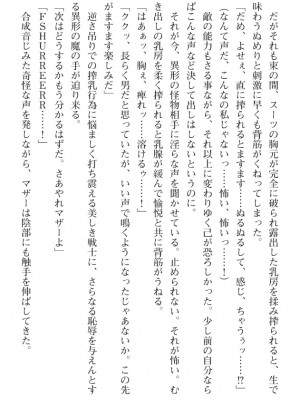 だがそれも束の間、スーツの胸元が完全に破られ露出した乳房を揉み搾られると、生で
味わうぬめりと刺激に早くも背筋がくねってしまった。
「だめ、よせぇ、直に搾られるとますます……ぬるぬるして、感じ、ちゃうぅッ……!?」
（なんて声だ、こんなの私じゃないっ……怖い、怖いっ……！）
　敵の能力もさる事ながら、それ以上に変わりゆく己が恐ろしかった。少し前の自分なら
こんな声など決して出しはしないのに……。
　それが今、異形の怪物相手に淫らな声を聞かせている。止められない。それが怖い。む
き出しの乳房を柔く搾られると乳腺が緩んで愉悦と共に背筋がうねる。
「はぁぁッ、胸ぇ、痺れッ……溶けるッ……！」
「ククッ、長らく男だと思っていたが、いい声で鳴くようになったじゃあないか。この先
がますます楽しみだ」
　逆さ吊りでの搾乳行為に悩ましく打ち震える美しき戦士に、さらなる恥辱を与えんとす
る異形の魔の手が迫り来る。
「次はどうするかもう分かるはずだ。さあやれマザーよ」
「FSHURREERR……！」
　合成音じみた奇怪な声を発しながら、マザーは陰部にも触手を伸ばしてきた。